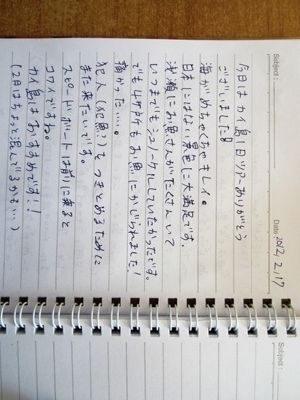 Subject:
Date 2012.2.17
今日はカイ島1日ツアーありがとう
ございました!!
海がめちゃくちゃキレイ。
日本にはない景色に大満足です。
浅瀬にお魚さんがたくさんいて
いつまでもシュノーケルしていたかったです。
でも4ヶ所もお魚にかじられました!
痛かった…。
犯人(犯魚?)をつきとめるために
また来たいです。
スピードボートは前に乗ると
コワイですね。
カイ島はおすすめです!!
(2月はちょっと混んでるかも…)
Subject: